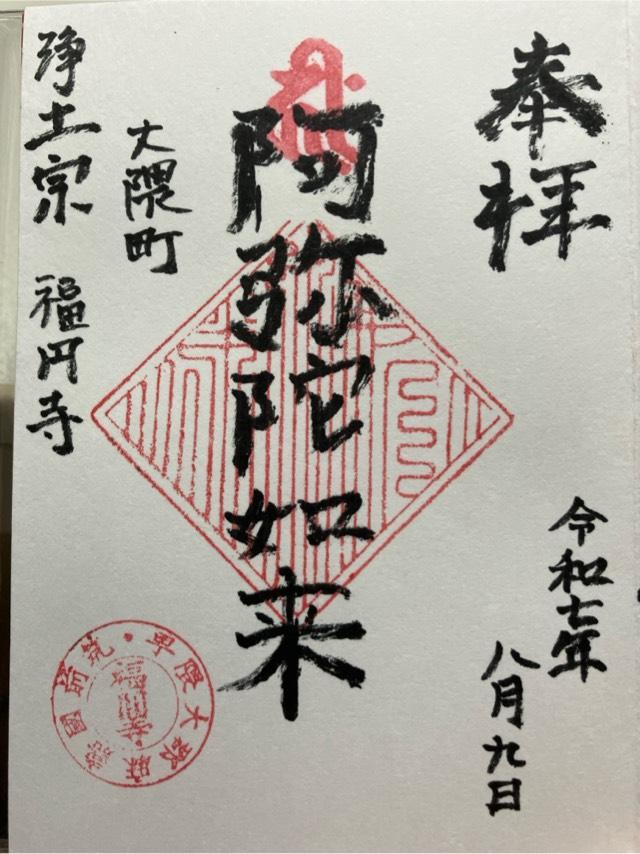 奉拝
令和七年
八月九日
阿弥陀如来
大隈町
浄土宗 福円寺